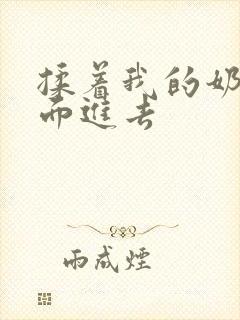 揉着我的奶
而进去
雨成煙